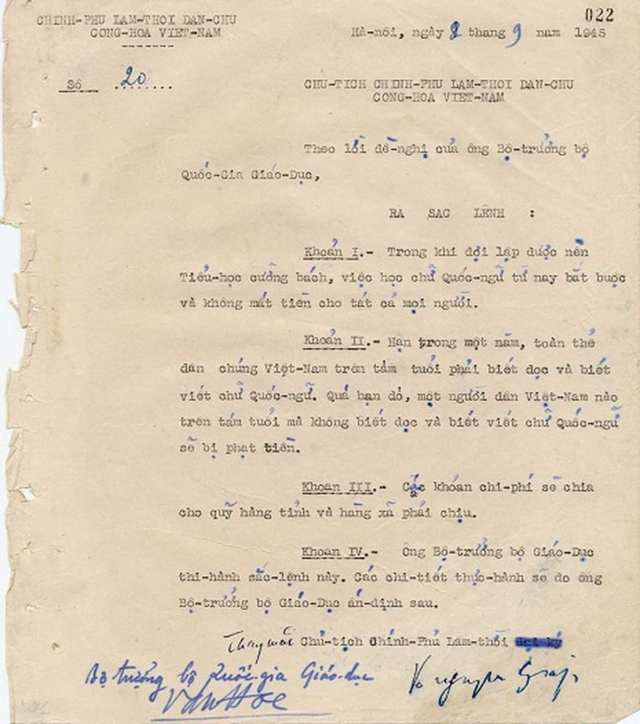 022
CHINH-PHU LAM-THOI DAN-CHU
CONG-HOA VIET-NAM
Hà-nôi, ngày 8 tháng 9 nam 1945
Số 20
CHU-TICH CHINH-PHU LAM-THOI DAN-CHU
CONG-HOA VIET-NAM
Theo lối đề-nghị của ông Bộ-trưởng bộ
Quốc-Gia Giáo-Dục,
RA SAC LÊNH :
Khoản I.- Trong khi đợi lập được nền
Tiểu-học cưỡng bách, việc học chữ Quốc-ngữ từ nay bắt buộc
và không mất tiền cho tất cả mọi người.
Khoản II.- Hạn trong một năm, toàn thể
dân chúng Việt-Nam trêm tám tuổi phải biết đọc và biết
viết chữ Quốc-ngữ. Quá hạn đó, một người dân Việt-Nam nào
trên tám tuổi mà không biết đọc và biết viết chữ Quốc-ngữ
sẽ bị phạt tiền.
Khoản III.- Các khoản chi-phí sẽ chia
cho quỹ hàng tỉnh và hàng xã phải chịu.
Khoản IV.- Ông Bộ-trưởng bộ Giáo-Dục
thi-hành sắc-lệnh này. Các chi-tiết thực-hành sẽ do ông
Bộ-trưởng bộ Giáo-Dục ấn-định sau.
Thay mặt Chủ-tịch Chính-Phủ Lâm-thời
Bộ trưởng bộ Quốc-gia Giáo-dục
Võ nguyên Giáp